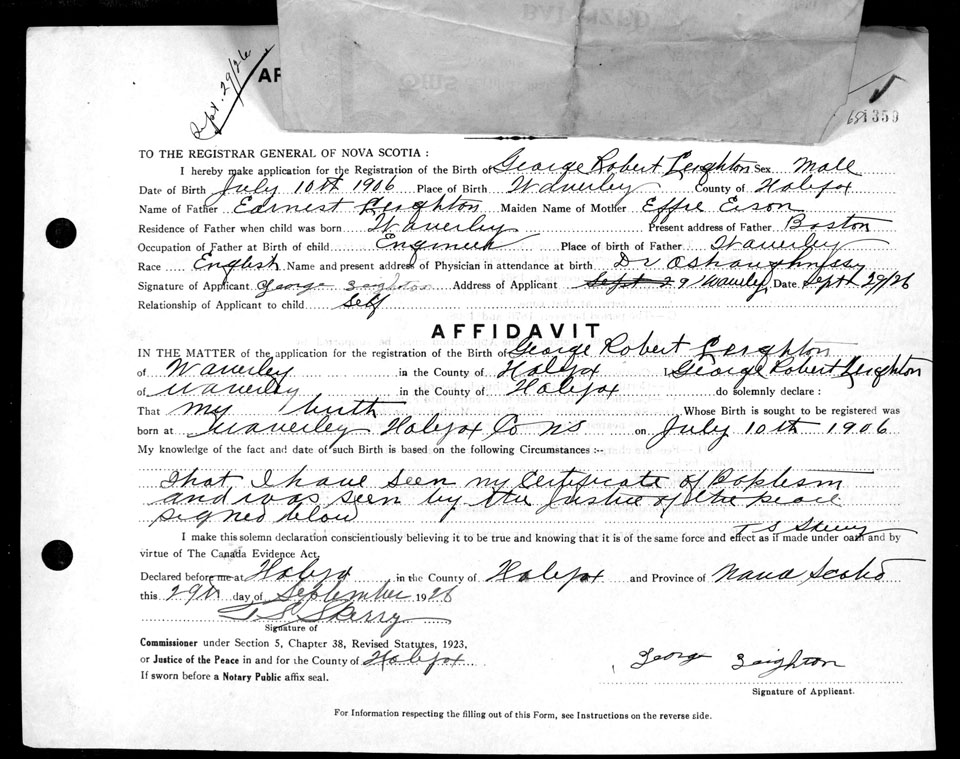 Sept. 29/26
AF
681359
TO THE REGISTRAR GENERAL OF NOVA SCOTIA :
I hereby make application for the Registration of the Birth of George Robert Leighton Sex Male
Date of Birth July 10th 1906 Place of Birth Waverley County of Halifax
Name of Father Earnest Leighton Maiden Name of Mother Effie Eison
Residence of Father when child was born Waverley Present address of Father Boston
Occupation of Father at Birth of child Engineer Place of birth of Father Waverley
Race English Name and present address of Physician in attendance at birth Dr OShaughnessy
Signature of Applicant George Leighton Address of Applicant Sept 29 Waverley Date Sept 29/26
Relationship of Applicant to child Self
AFFIDAVIT
IN THE MATTER of the application for the registration of the Birth of George Robert Leighton
of Waverley in the County of Halifax I, George Robert Leighton
of Waverley in the County of Halifax do solemnly declare :
That my birth Whose Birth is sought to be registered was
born at Waverley Halifax Co NS on July 10th 1906
My knowledge of the fact and date of such Birth is based on the following Circumstances :--
That I have seen my Certificate of Baptism
and was seen by the Justice of the peace
signed below
T S Skerry
I make this solemn declaration conscientiously believing it to be true and knowing that it is of the same force and effect as if made under oath and by
virtue of The Canada Evidence Act.
Declared before me at Halifax in the County of Halifax and Province of Nova Scotia
this 29th day of September 1926
T S Skerry
Signature of
Commissioner under Section 5, Chapter 38, Revised Statutes, 1923,
or Justice of the Peace in and for the County of Halifax
If sworn before a Notary Public affix seal.
George Leighton
Signature of Applicant.
For Information respecting the filling out of this Form, see Instructions on the reverse side.